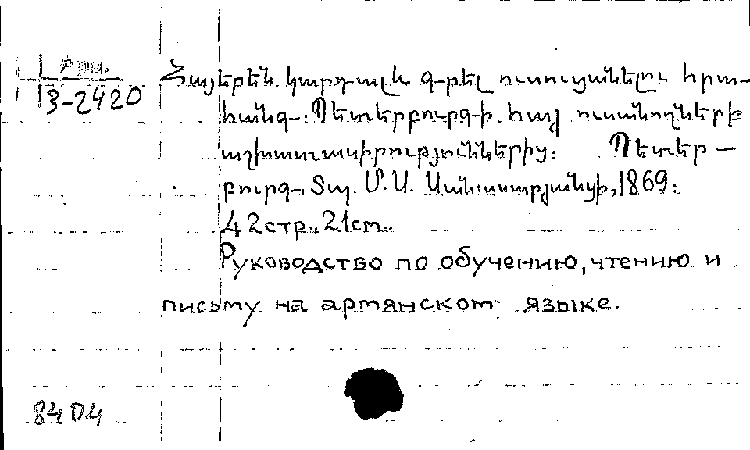 Քրտ.
13-2420
Հայերեն կարդալ և գրել ուսուցանելու հրա-
հանգ: Պետերբուրգի հայ ուսանողների
աշխատասիրություններից: Պետեր-
բուրգ, Տպ. Մ. Ս. Սանասարյանցի, 1869:
42 стр. 21 см.
Руководство по обучению, чтению и
письму на армянском языке.
8404